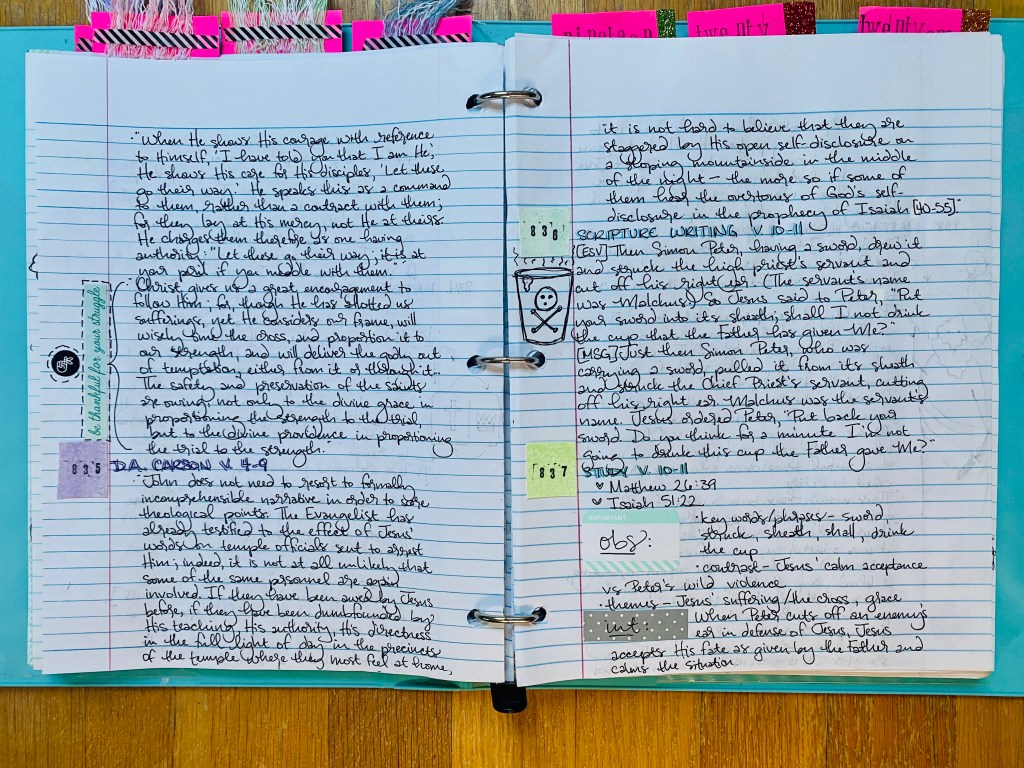 nineteen
twenty
twenty one
"When He shows His courage with reference
to Himself, 'I have told you that I am He,'
He shows His care for His disciples, 'Let these
go their way.' He speaks this as a command
to them, rather than a contract with them;
for they lay at His mercy, not He at theirs.
He charges them therefore as one having
authority: "Let these go their way; it is at
your peril if you meddle with them."
"Christ gives us a great encouragement to
follow Him; for, though He has allotted us
sufferings, yet He considers our frame, will
wisely time the cross, and proportion it to
our strength, and will deliver the godly out
of temptation, either from it or through it...
The safety and preservation of the saints
are owing, not only to the divine grace in
proportioning the strength to the trial,
but to the divine providence in proportioning
the trial to the strength.
be thankful for your struggle
835
D.A. CARSON V. 4-9
"John does not need to resort to formally
incomprehensible narrative in order to score
theological points. The Evangelist has
already testified to the effect of Jesus'
words on temple officials sent to arrest
Him; indeed, it is not at all unlikely that
some of the same personnel are again
involved. If they have been awed by Jesus
before, if they have been dumbfounded by
His teaching, His authority, His directness
in the full light of day in the precincts
of the temple where they most feel at home,
it is not hard to believe that they are
staggered by His open self-disclosure on
a sloping mountainside in the middle
of the night – the more so if some of
them hear the overtones of God's self-
disclosure in the prophecy of Isaiah [40-55]."
836
SCRIPTURE WRITING V. 10-11
[ESV] Then Simon Peter, having a sword, drew it
and struck the high priest's servant and
cut off his right ear. (The servant's name
was Malchus.) So Jesus said to Peter, "Put
your sword into its sheath; shall I not drink
the cup that the Father has given Me?"
[MSG] Just then Simon Peter, who was
carrying a sword, pulled it from its sheath
and struck the Chief Priest's servant, cutting
off his right ear. Malchus was the servant's
name. Jesus ordered Peter, "Put back your
sword. Do you think for a minute I'm not
going to drink this cup the Father gave Me?"
837
STUDY V. 10-11
Matthew 26:39
Isaiah 51:22
IMPORTANT:
obs:
· key words/phrases – sword,
struck, sheath, shall, drink
the cup
· contrast – Jesus' calm acceptance
vs Peter's wild violence
· themes – Jesus' suffering/the cross, grace
int:
When Peter cuts off an enemy's
ear in defense of Jesus, Jesus
accepts His fate as given by the Father and
calms the situation.